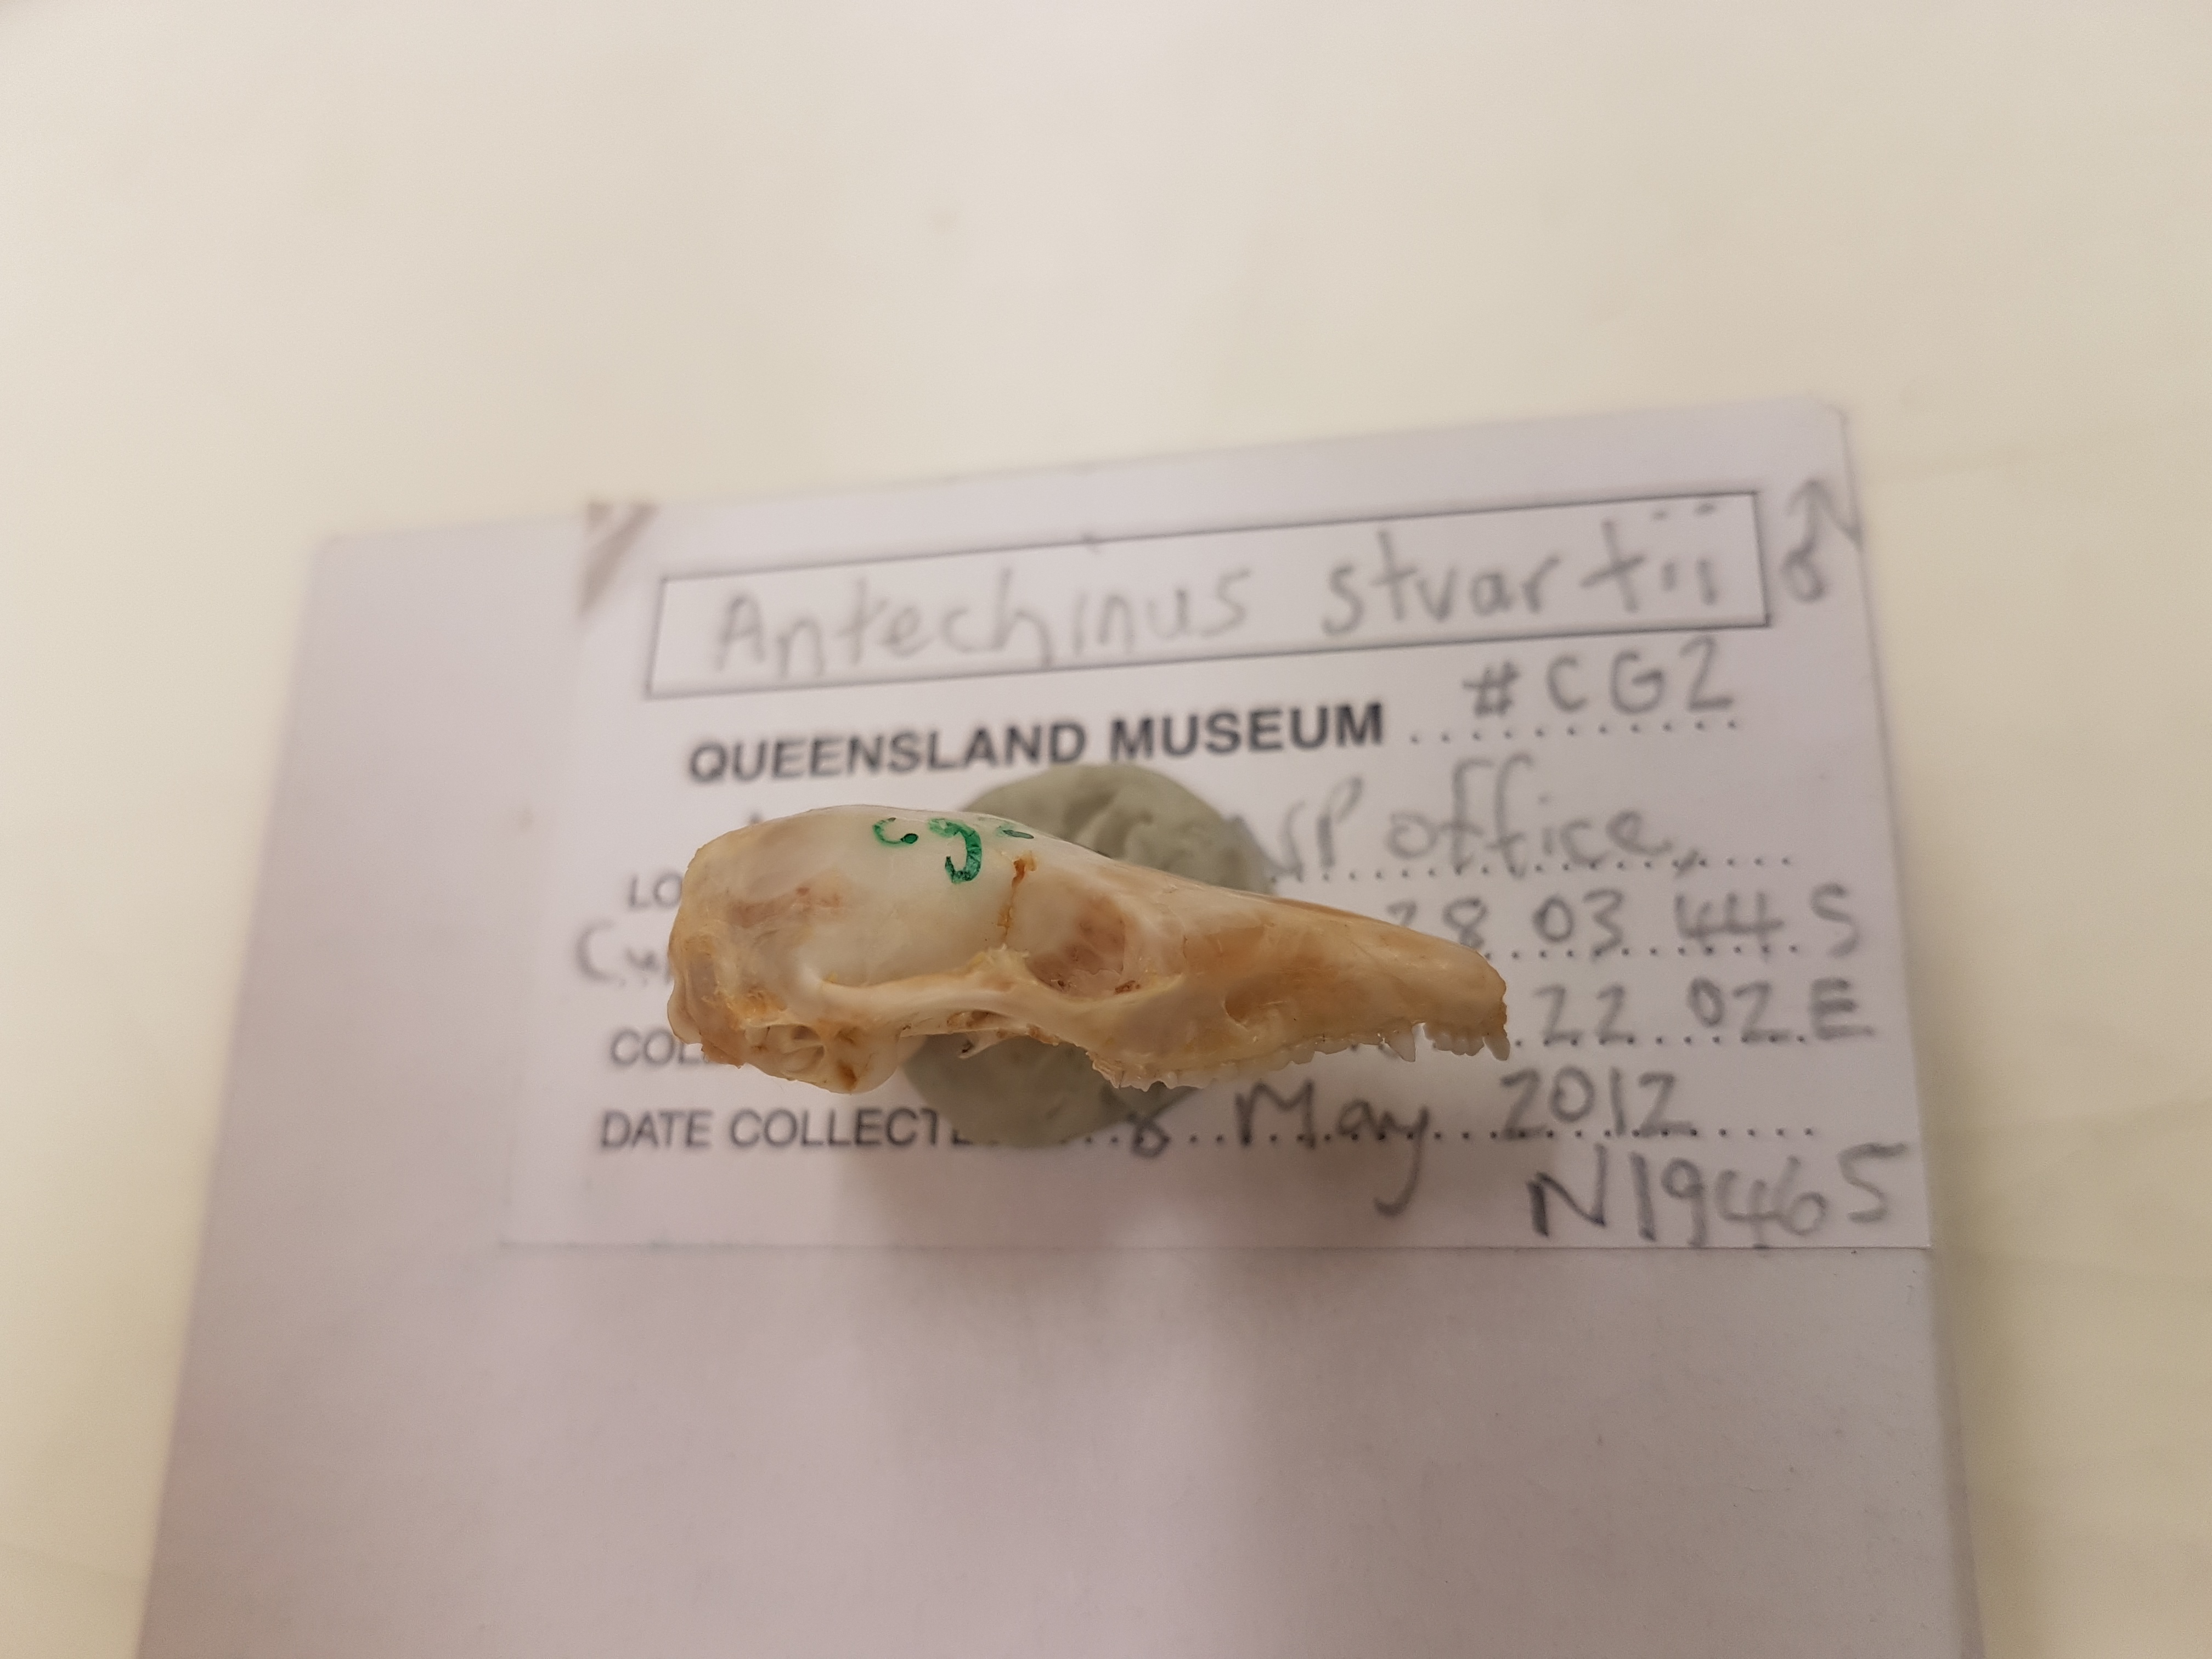 Antechinus stuartii ♂
QUEENSLAND MUSEUM ..... #CG2
LO NP office,
28 03 44 S
COL 22 02 E
DATE COLLECTE 8 May 2012
N19465